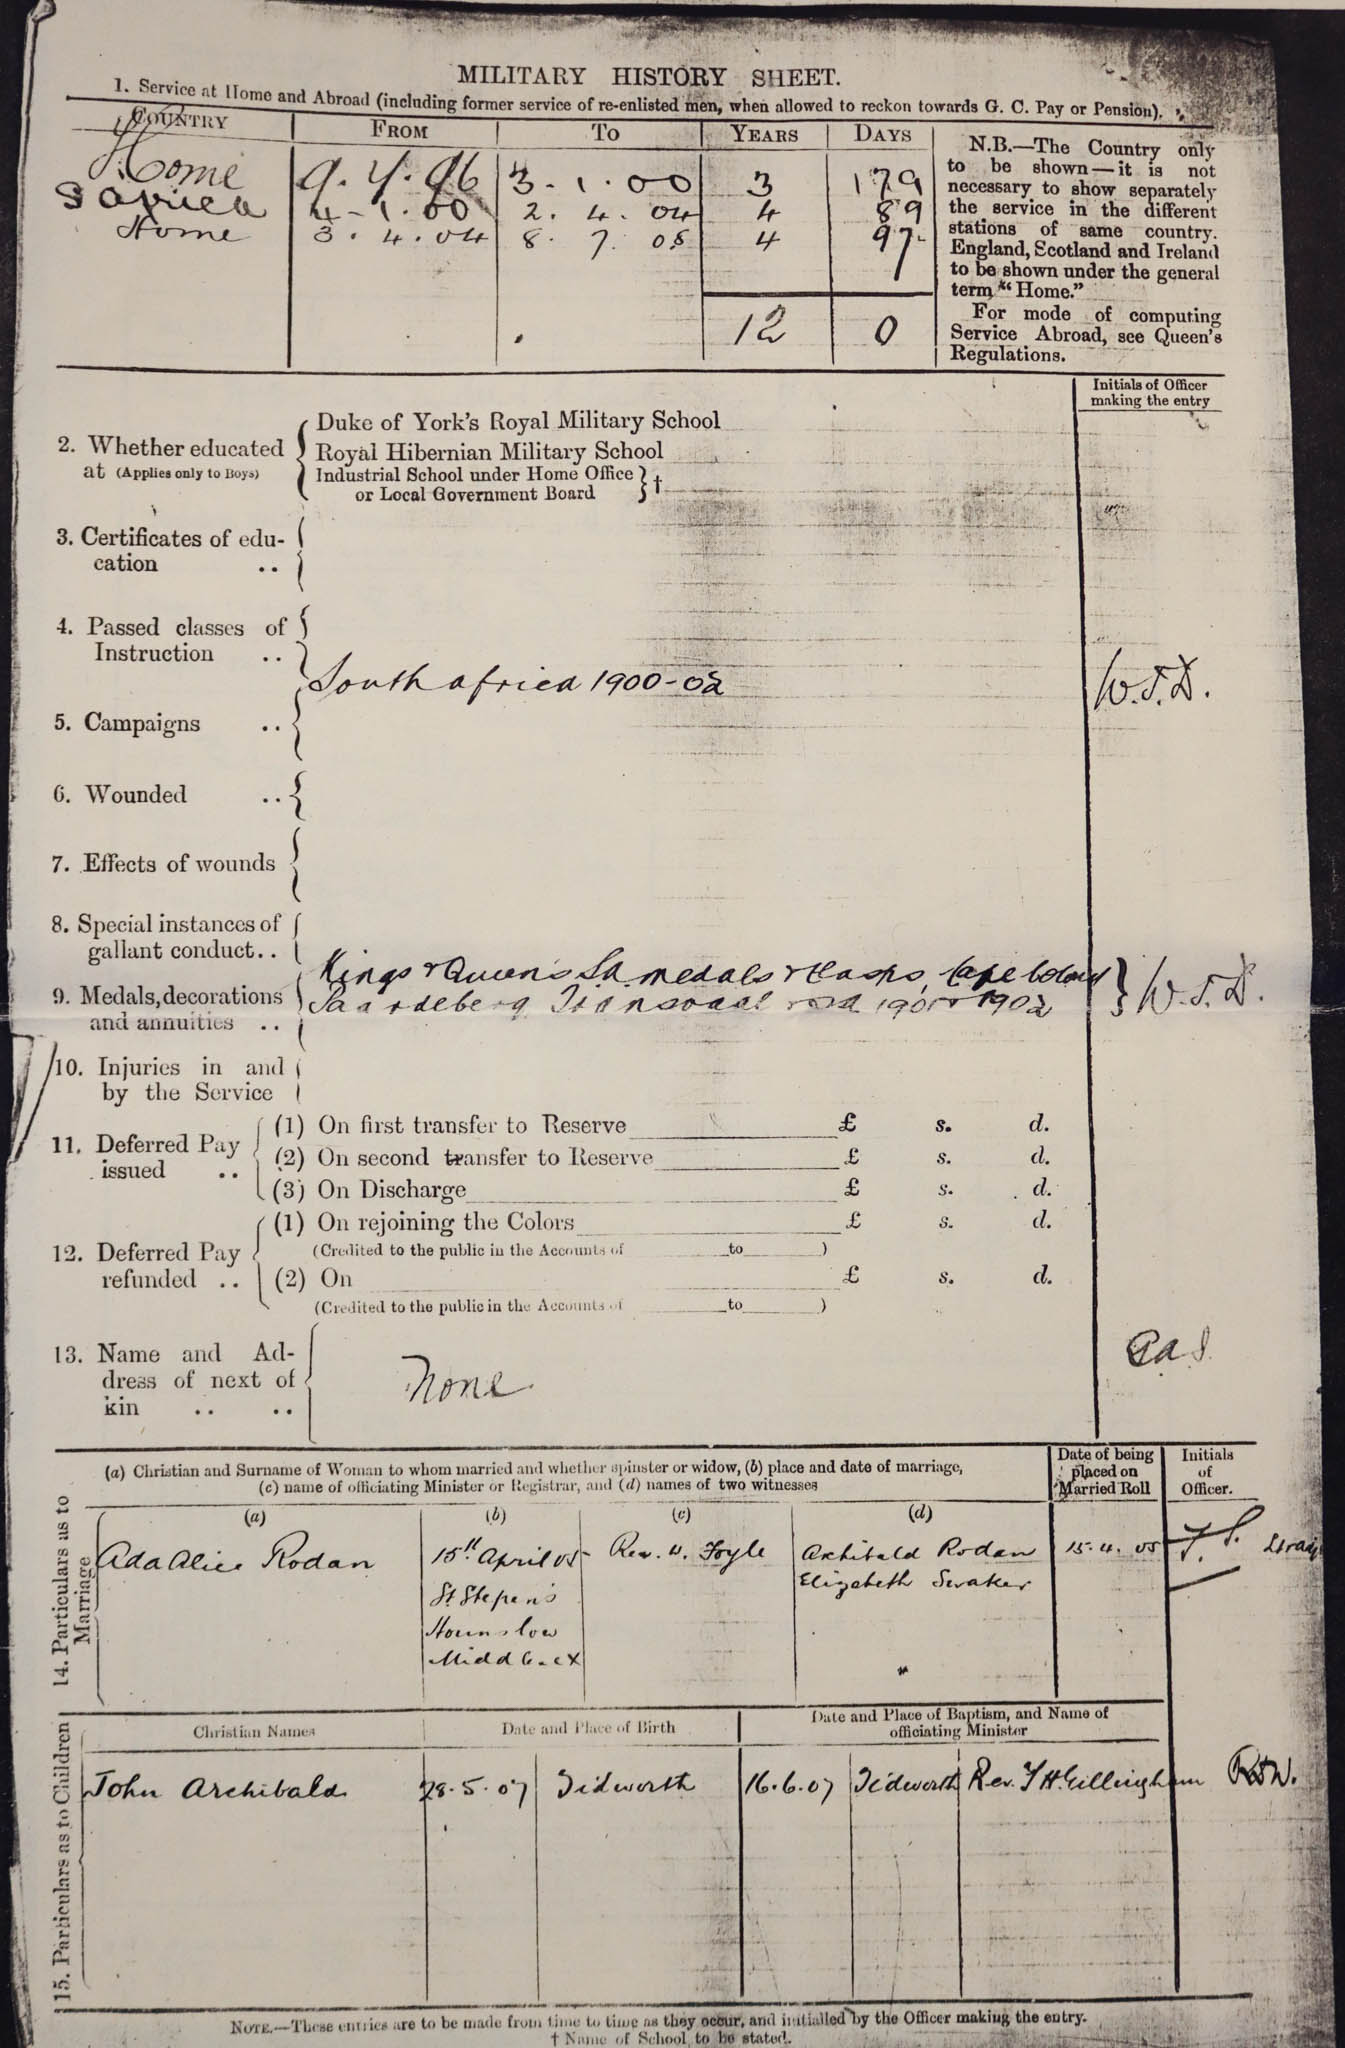 MILITARY HISTORY SHEET.
1. Service at Home and Abroad (including former service of re-enlisted men, when allowed to reckon towards G. C. Pay or Pension).
COUNTRY FROM TO YEARS DAYS
Home 9. 7. 96 3 - 1 . 00 3 179
S Africa 4 - 1. 00 2. 4. 04 4 89
Home 3. 4. 04 8. 7. 08 4 97
12 0
N.B.—The Country only
to be shown—it is not
necessary to show separately
the service in the different
stations of same country.
England, Scotland and Ireland
to be shown under the general
term "Home."
For mode of computing
Service Abroad, see Queen's
Regulations.
Initials of Officer
making the entry
2. Whether educated
at (Applies only to Boys)
Duke of York's Royal Military School
Royal Hibernian Military School
Industrial School under Home Office
or Local Government Board †
3. Certificates of edu-
cation ..
4. Passed classes of
Instruction ..
5. Campaigns ..
South Africa 1900-02 W.J.D.
6. Wounded ..
7. Effects of wounds
8. Special instances of
gallant conduct..
9. Medals, decorations
and annuities ..
Kings & Queen's SA medals & Clasps, Cape Colony
Paardeberg Transvaal 1901 & 1902 W.J.D.
10. Injuries in and
by the Service
11. Deferred Pay
issued ..
(1) On first transfer to Reserve £ s. d.
(2) On second transfer to Reserve £ s. d.
(3) On Discharge £ s. d.
12. Deferred Pay
refunded ..
(1) On rejoining the Colors £ s. d.
(Credited to the public in the Accounts of to )
(2) On £ s. d.
(Credited to the public in the Accounts of to )
13. Name and Ad-
dress of next of
kin .. ..
None
14. Particulars as to
Marriage
(a) Christian and Surname of Woman to whom married and whether spinster or widow, (b) place and date of marriage,
(c) name of officiating Minister or Registrar, and (d) names of two witnesses
Date of being
placed on
Married Roll
Initials
of
Officer.
(a) (b) (c) (d)
Ada Alice Rodan
15th April 05
St Stepen's
Hounslow
Middlesex
Rev. W. Foyle
Archibald Rodan
Elizabeth Swaker
15. 4. 05
15. Particulars as to Children
Christian Names
Date and Place of Birth
Date and Place of Baptism, and Name of
officiating Minister
John Archibald 28. 5. 07 Tidworth 16. 6. 07 Tidworth Rev. T H. Gillingham
NOTE.—These entries are to be made from time to time as they occur, and initialled by the Officer making the entry.
† Name of School to be stated.